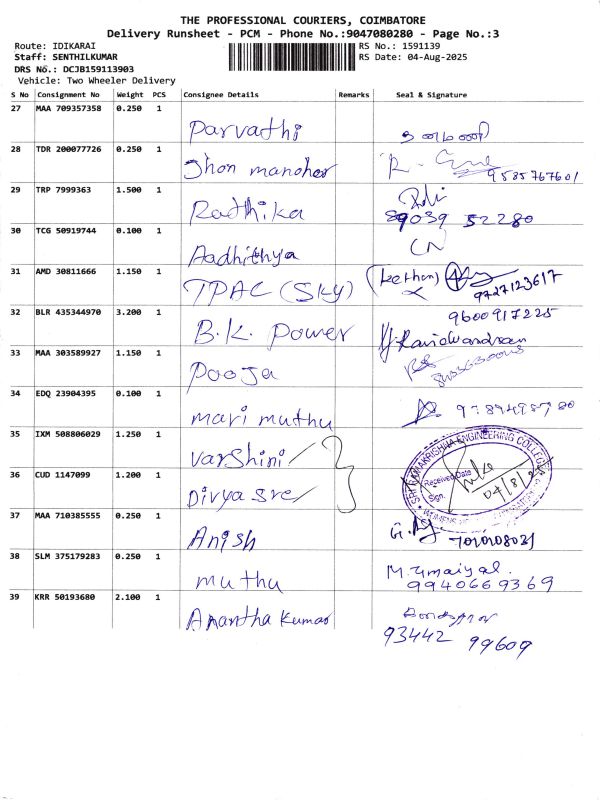 THE PROFESSIONAL COURIERS, COIMBATORE
Delivery Runsheet - PCM - Phone No.:9047080280 - Page No.:3
Route: IDIKARAI
RS No.: 1591139
Staff: SENTHILKUMAR
RS Date: 04-Aug-2025
DRS No.: DCJB159113903
Vehicle: Two Wheeler Delivery
S No Consignment No Weight PCS Consignee Details Remarks Seal & Signature
27 MAA 709357358 0.250 1
Parvathi
28 TDR 200077726 0.250 1
Jhon manoher
9585767601
29 TRP 7999363 1.500 1
Radhika
89039 52280
30 TCG 50919744 0.100 1
Aadhithya
CN
31 AMD 30811666 1.150 1
TPAC (SKY) (kethan)
9727123617
32 BLR 435344970 3.200 1
9600917225
B.K. Power
33 MAA 303589927 1.150 1
Pooja
34 EDQ 23904395 0.100 1
mari muthu
35 IXM 508806029 1.250 1
varshini
SRI RAMAKRISHNA ENGINEERING COLLEGE
Received Date
04/8/2
Sign.
36 CUD 1147099 1.200 1
Divyasre
37 MAA 710385555 0.250 1
Anish
38 SLM 375179283 0.250 1
muthu
M. Umaiyal.
9940669369
39 KRR 50193680 2.100 1
Anantha kumar
93442 99609